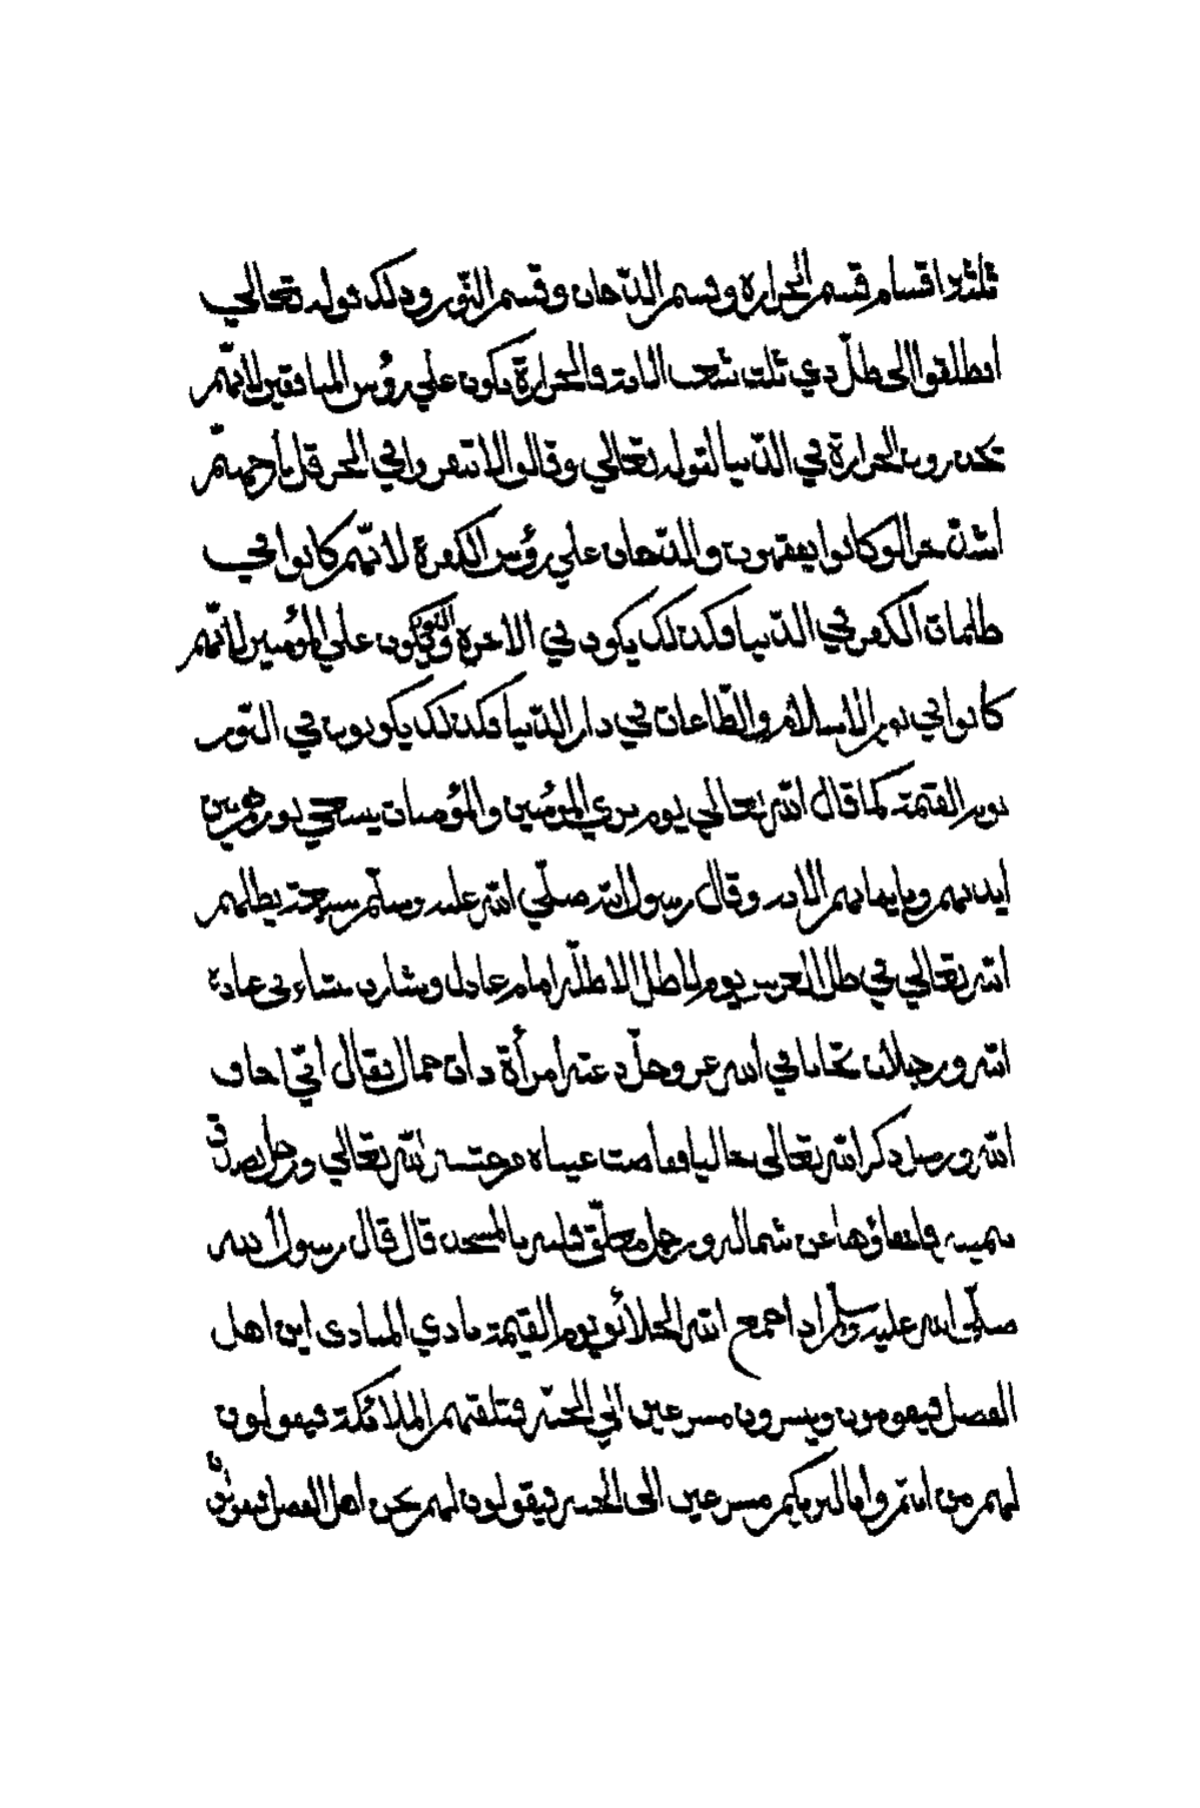 ثلثة اقسام قسم الحرارة وقسم الدّخان وقسم النّور وذلك قوله تعالى
انطلقوا الى ظلّ ذي ثلث شعب الاية فالحرارة يكون علي رؤس المنافقين لانّهم
يحذرون الحرارة في الدّنيا لقوله تعالي وقالوا لا تنفروا في الحر قل نار جهنّم
اشدّ حرا لو كانوا يفقهون والدّخان علي رؤس الكفرة لانّهم كانوا في
ظلمات الكفر في الدّنيا فكذلك يكون في الاخرة والنّور يكون علي المؤمنين لانّهم
كانوا في نور الاسلام والطّاعات في دار الدّنيا فكذلك يكونون في النّور
يوم القيمة كما قال اللّه تعالي يوم تري المؤمنين والمؤمنات يسعي نورهم بين
ايديهم وبايمانهم الاية وقال رسول اللّه صلّي اللّه عليه وسلّم سبعة يظلهم
اللّه تعالي في ظل العرش يوم لا ظل الا ظلّه امام عادل وشاب نشاء في عبادة
اللّه ورجلان تحابا في اللّه عز وجلّ دعته امرأة ذات جمال فقال انّي اخاف
اللّه ورجل ذكر اللّه تعالى خاليا ففاضت عيناه من خشية اللّه تعالي ورجل تصدق
بيمينه فاخفاؤها عن شماله ورجل معلّق قلبه بالمسجد قال قال رسول اللّه
صلّي اللّه عليه وسلّم اذا جمع اللّه الخلائق يوم القيمة ينادي المنادى اين اهل
الفضل فيقومون ويسيرون مسرعين الي الجنّة فتلقيهم الملائكة فيقولون
لهم من انتم وانا لنريكم مسرعين الى الجنة فيقولون لهم نحن اهل الفضل فيقولون